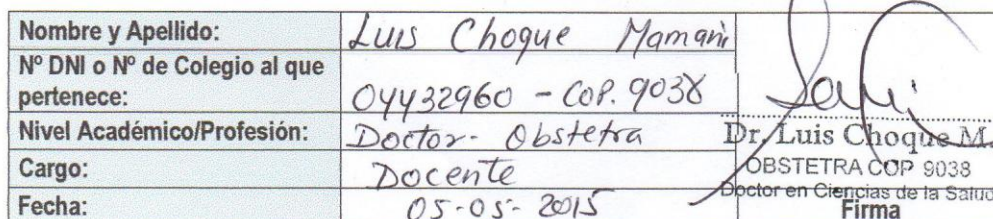 Nombre y Apellido: Luis Choque Mamani
Nº DNI o Nº de Colegio al que pertenece: 04432960 - COP. 9038
Nivel Académico/Profesión: Doctor - Obstetra
Cargo: Docente
Fecha: 05-05-2015
Dr. Luis Choque M.
OBSTETRA COP 9038
Doctor en Ciencias de la Salud
Firma